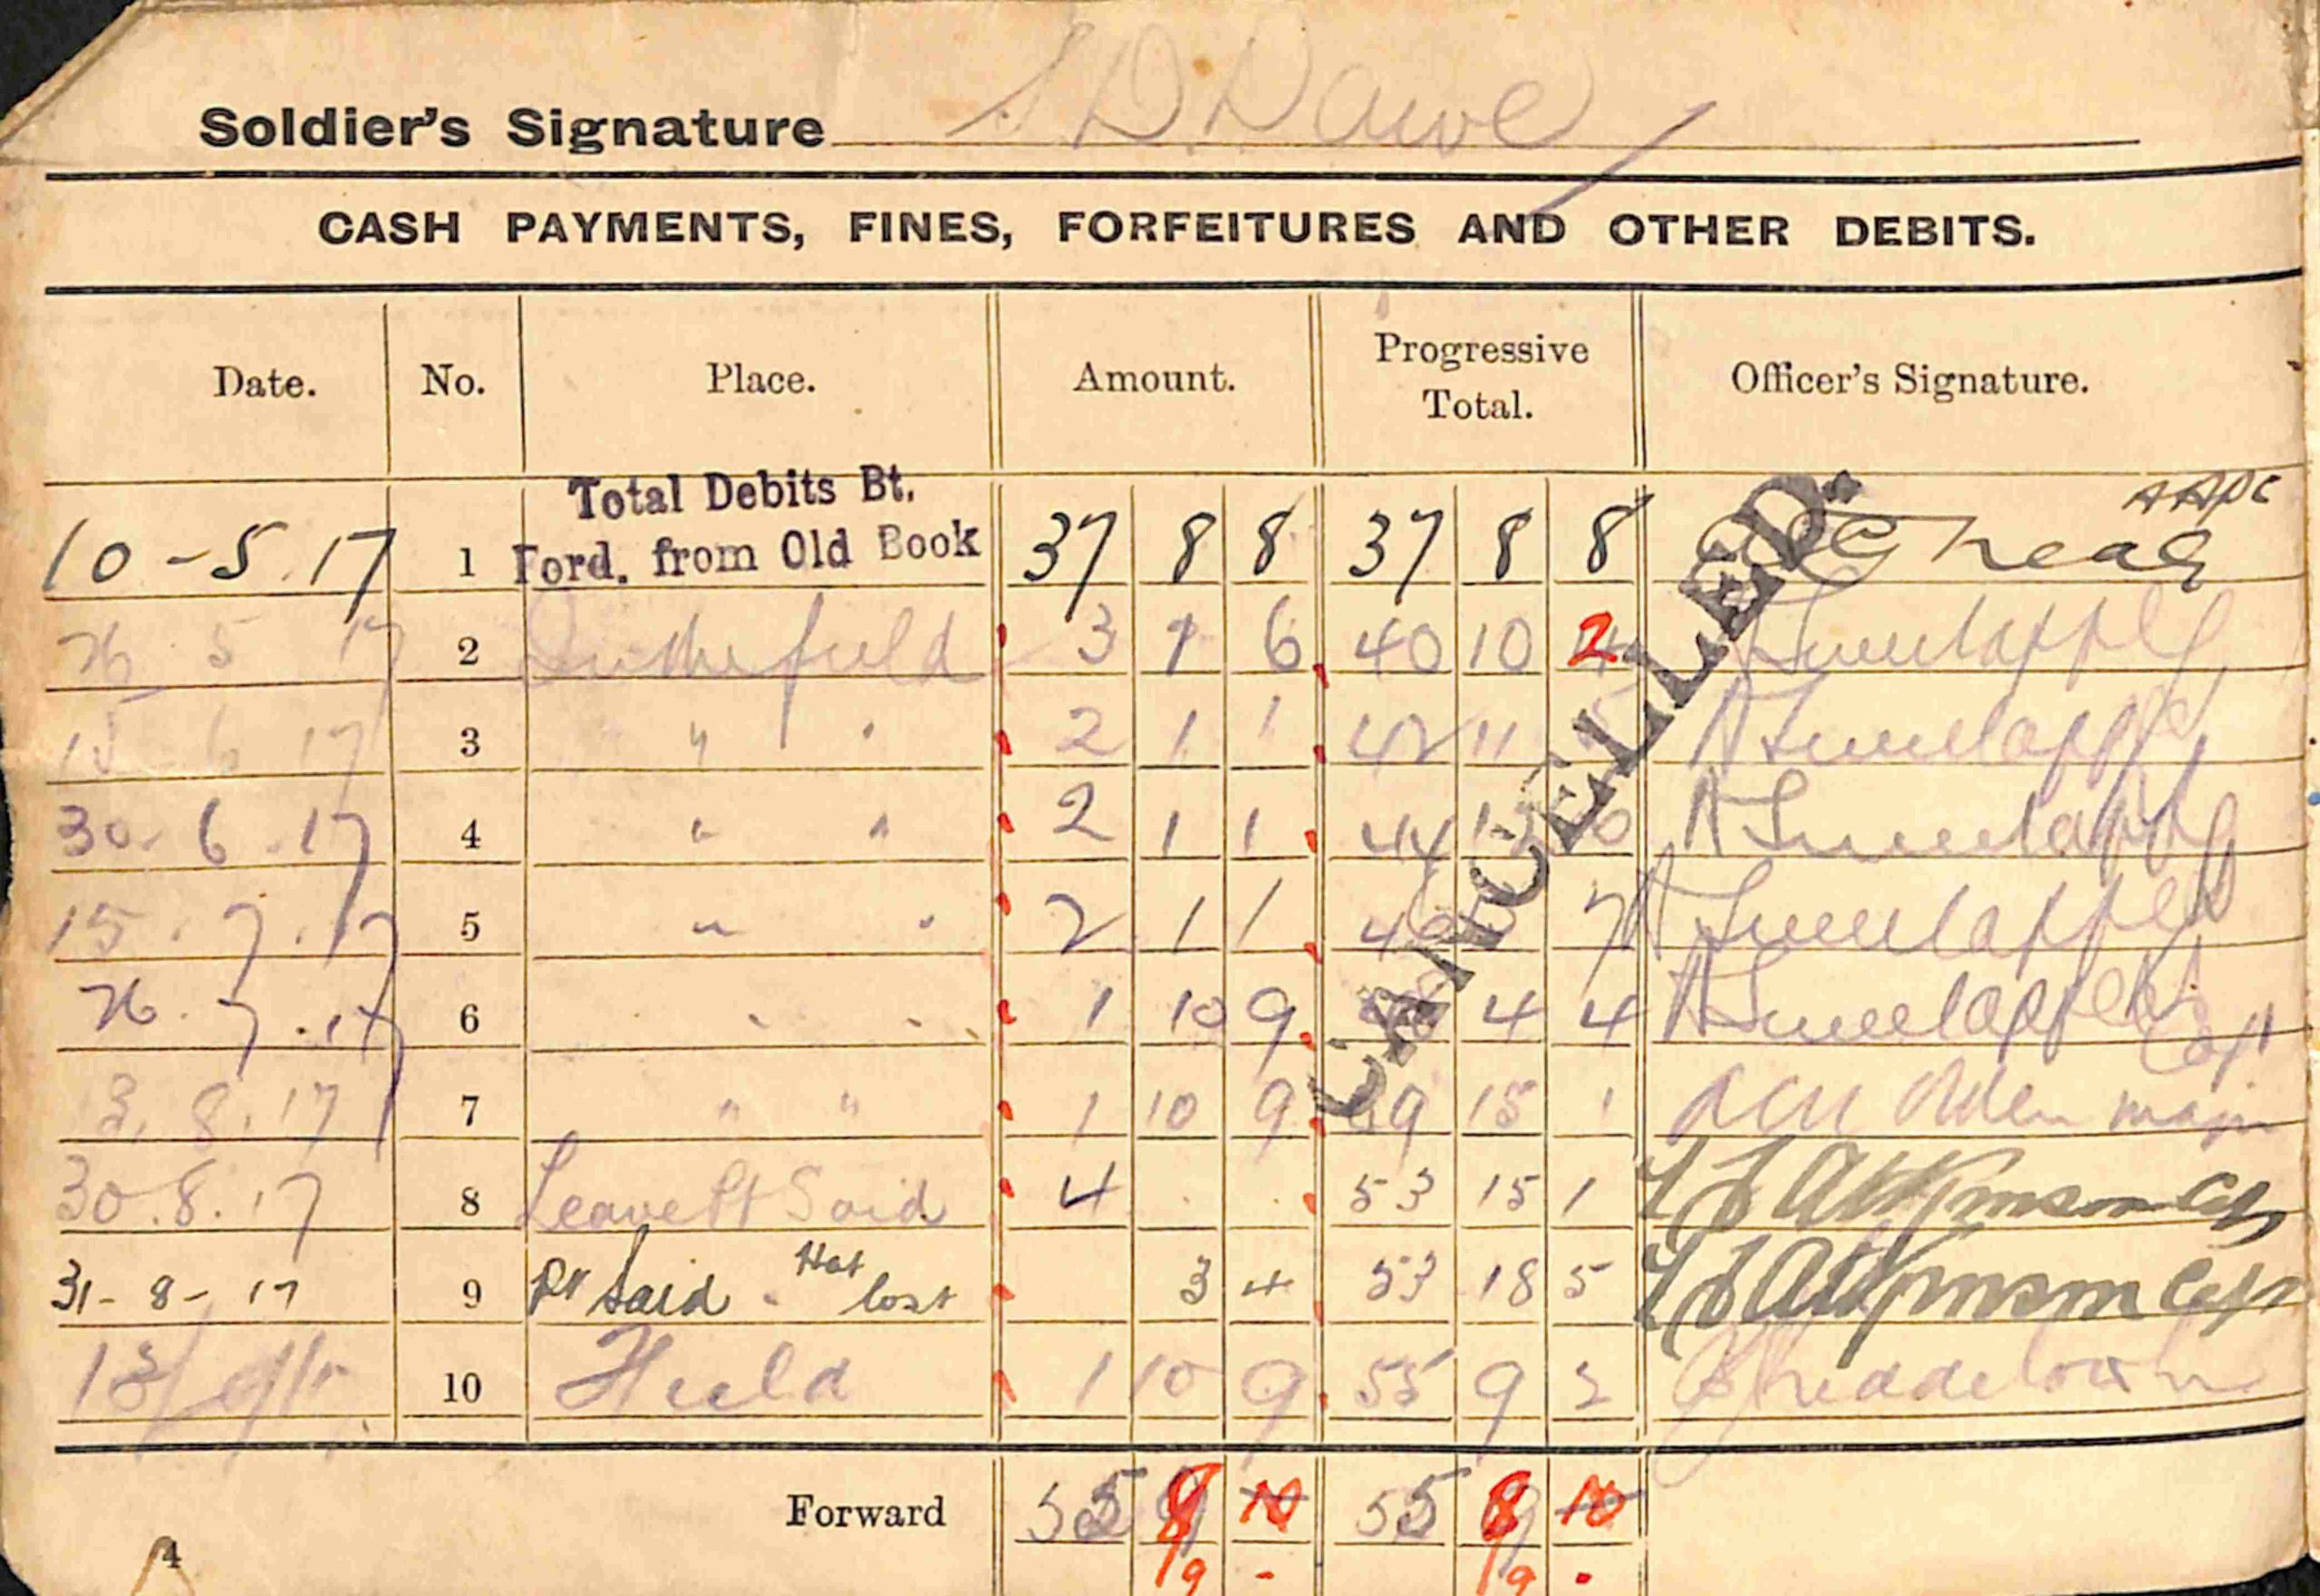 Soldier's Signature S D. Dawe
CASH PAYMENTS, FINES, FORFEITURES AND OTHER DEBITS.
Date. No. Place. Amount. Progressive Total. Officer's Signature.
Total Debits Bt.
10 - 5. 17 1 Ford. from Old Book 37 8 8 37 8 8
26 5 17 2 In the field 3 1 6 40 10 2
15 - 6 17 3 " " 2 1 1 42 11
30. 6. 17 4 " " 2 1 1 44
15. 7. 17 5 " " 2 1 1 7
26. 7. 17 6 " " 1 10 9 4 4 Capt
3. 8. 17 7 " " 1 10 9 49 15 1 Major
30. 8. 17 8 Leave Pt Said 4 . . 53 15 1 Atkinson Capt
31 - 8 - 17 9 Pt Said - Hat lost 3 4 53 18 5 Atkinson Capt
10 Field 1 10 9 55 9 2
CANCELLED.
Forward 55 8 10 55 8 10
4 1/9 - 1/9 -